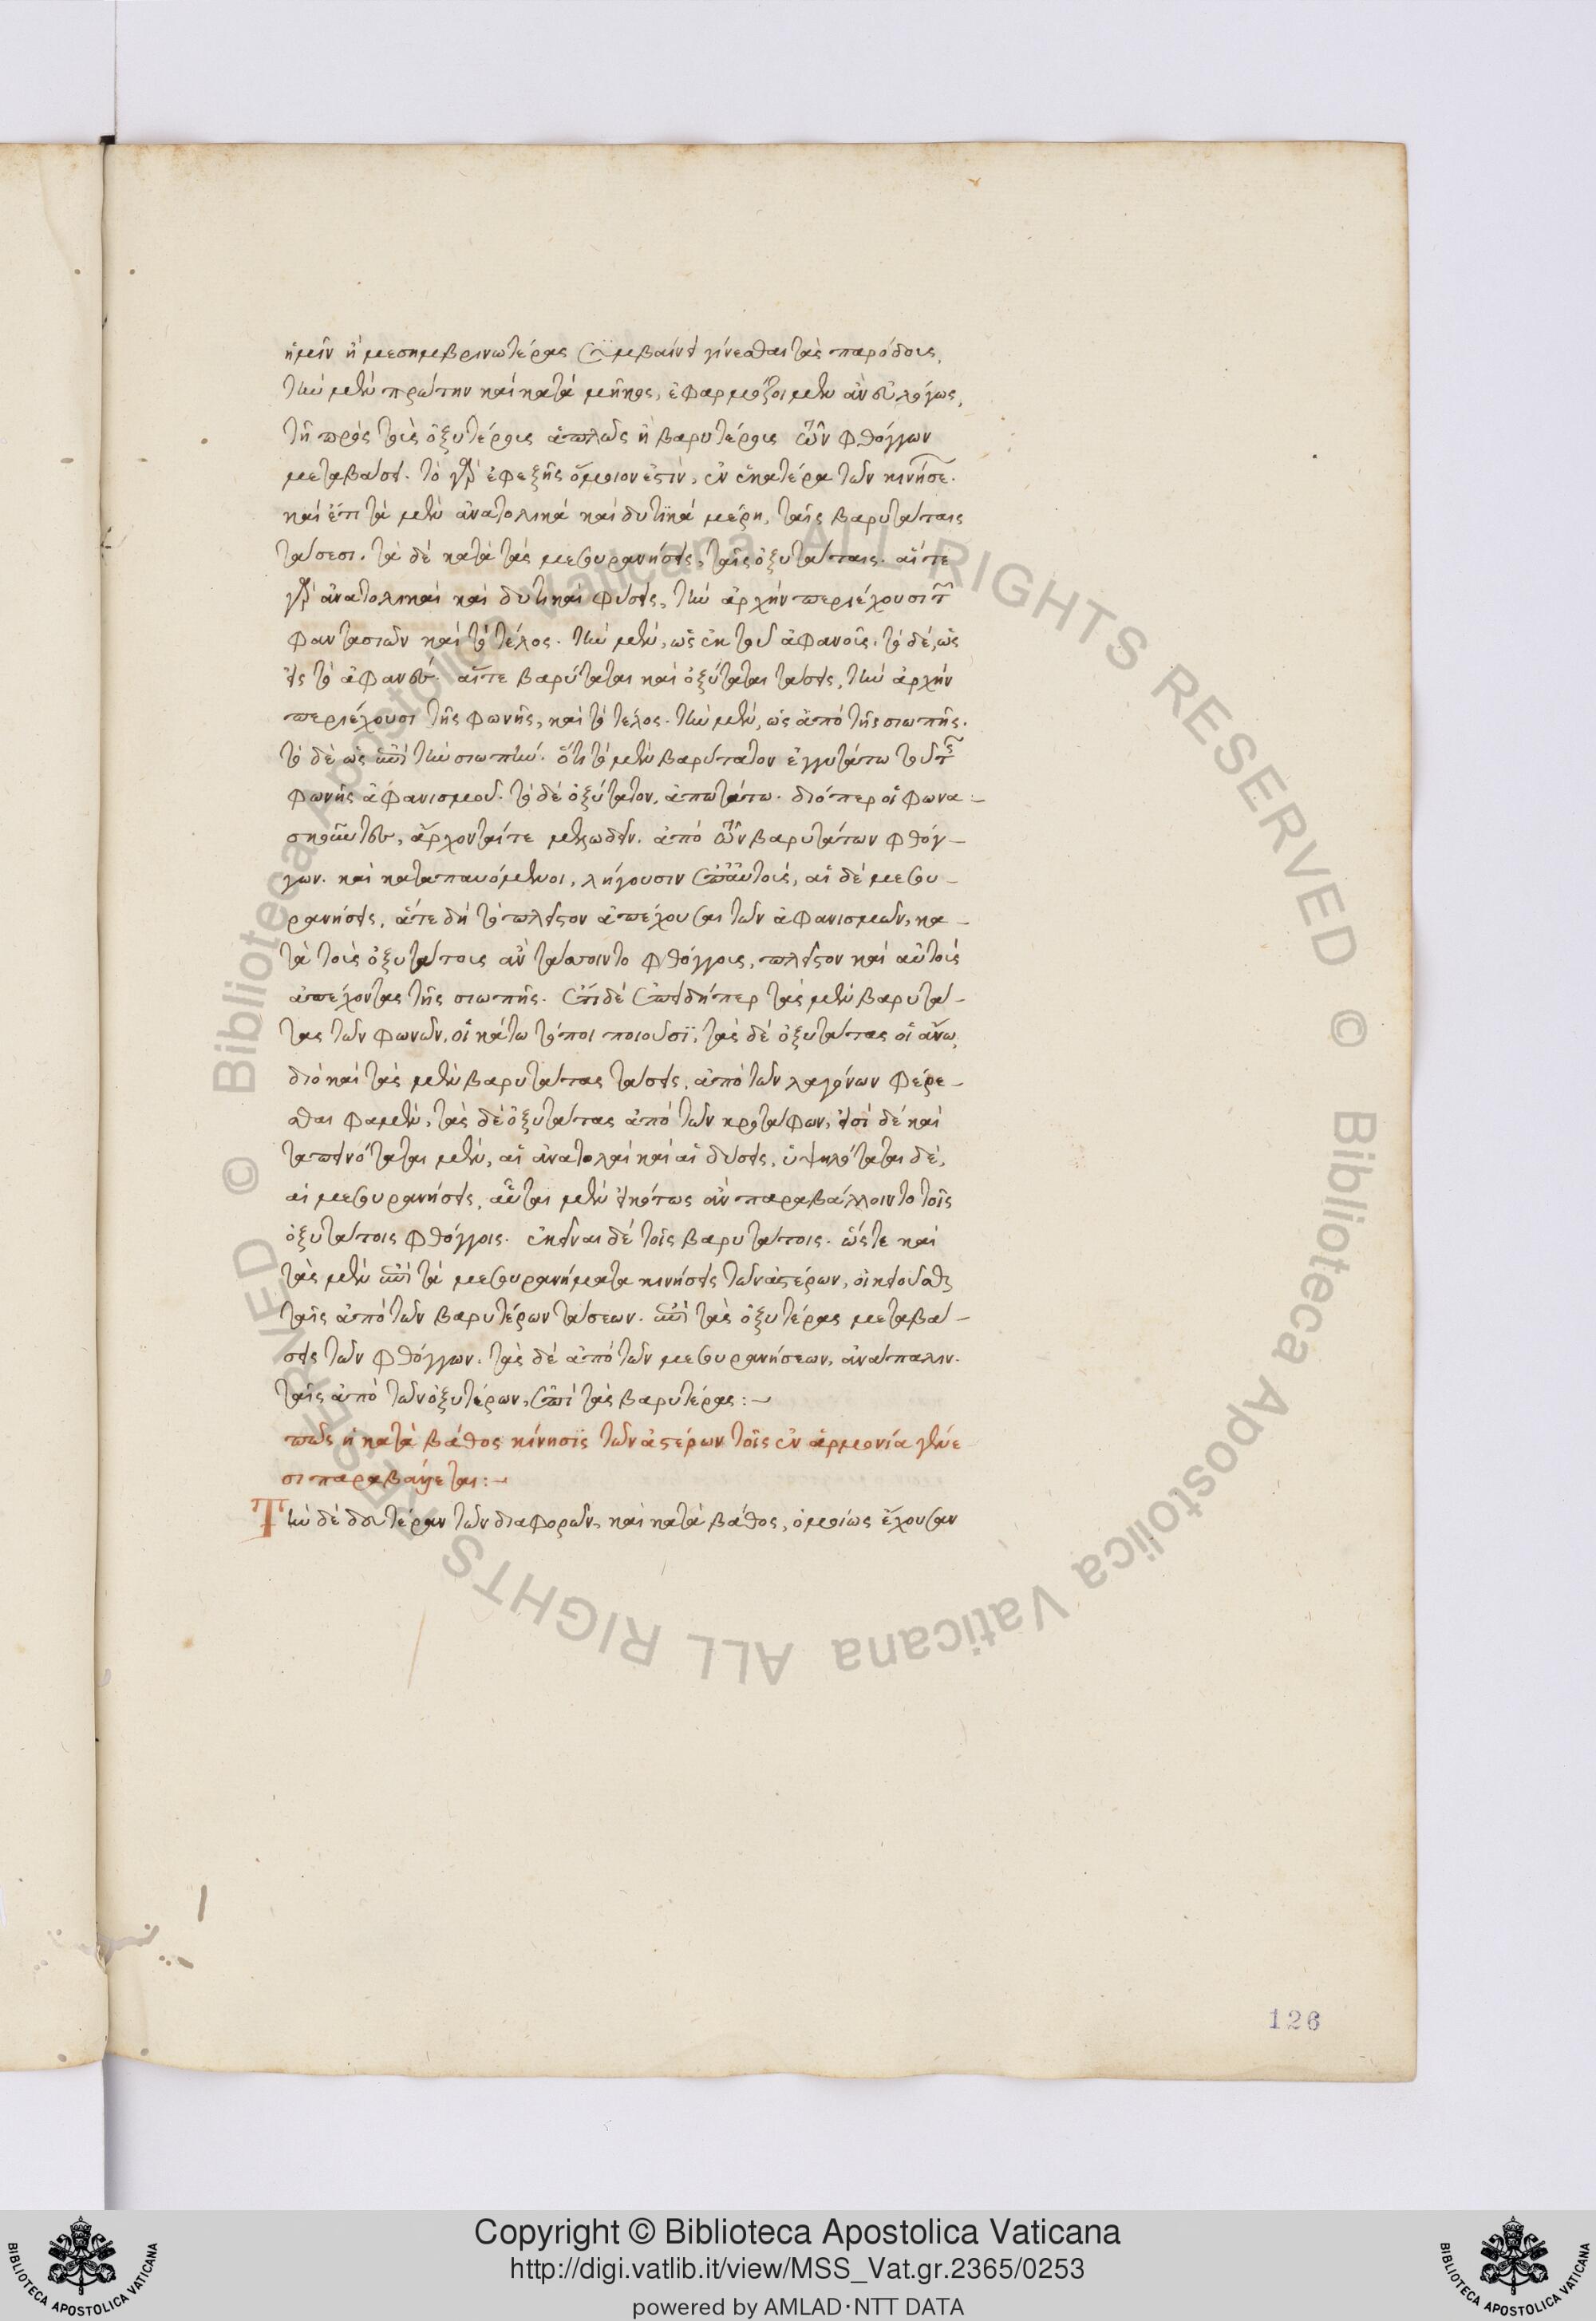 ἡμῖν ἢ μεσημβρινωτέρας συμβαίνει γίνεσθαι τὰς παρόδους,
τὴν μὲν πρώτην καὶ κατὰ μῆκος, ἐφαρμόζοιμεν ἂν εὐλόγως,
τῇ πρὸς τοὺς ὀξυτέρους ἁπλῶς ἢ βαρυτέρους τῶν φθόγγων
μεταβάσει. τὸ γὰρ ἐφεξῆς ὅμοιον ἐστὶν, ἐν ἑκατέρα τῶν κινήσε.
καὶ ἔτι τὰ μὲν ἀνατολικὰ καὶ δυτικὰ μέρη, ταῖς βαρυτάταις
τάσεσι. τὰ δὲ κατὰ τὰς μεσουρανήσεις, ταῖς ὀξυτάταις. αἵτε
γὰρ ἀνατολικαὶ καὶ δυτικαὶ φύσεις, τὴν ἀρχὴν περιέχουσι τῶν
φαντασιῶν καὶ τὸ τέλος. τὴν μὲν, ὡς ἐκ τοῦ ἀφανοῦς. τὸ δὲ, ὡς
εἰς τὸ ἀφανές. αἵτε βαρύταται καὶ ὀξύταται τάσεις, τὴν ἀρχὴν
περιέχουσι τῆς φωνῆς, καὶ τὸ τέλος. τὴν μὲν, ὡς ἀπὸ τῆς σιωπῆς.
τὸ δὲ ὡς ἐπὶ τὴν σιωπήν. ὅτι τὸ μὲν βαρύτατον ἐγγυτάτω τοῦ τῆς
φωνῆς ἀφανισμοῦ. τὸ δὲ ὀξύτατον, ἀπωτάτω. διόπερ οἱ φωνα-
σκοῦντες, ἄρχονταί τε μελωδεῖν. ἀπὸ τῶν βαρυτάτων φθόγ-
γων. καὶ καταπαυόμενοι, λήγουσιν ἐπ' αὐτούς, αἱ δὲ μεσου-
ρανήσεις, ἅτε δὴ τὸ πλεῖστον ἀπέχουσαι τῶν ἀφανισμῶν, κα-
τὰ τοὺς ὀξυτάτους ἂν τάσσοιντο φθόγγους, πλεῖστον καὶ αὐτοὺς
ἀπέχοντας τῆς σιωπῆς. ἔτι δὲ ἐπειδήπερ τὰς μὲν βαρυτά-
τας τῶν φωνῶν, οἱ κάτω τόποι ποιοῦσϊ, τὰς δὲ ὀξυτάτας οἱ ἄνω,
διὸ καὶ τὰς μὲν βαρυτάτας τάσεις, ἀπὸ τῶν λαγόνων φέρε-
σθαι φαμὲν, τὰς δὲ ὀξυτάτας ἀπὸ τῶν κροτάφων, εἰσὶ δὲ καὶ
ταπεινόταται μὲν, αἱ ἀνατολαὶ καὶ αἱ δύσεις, ὑψηλόταται δὲ,
αἱ μεσουρανήσεις, αὗται μὲν εἰκότως ἂν παραβάλλοιντο τοῖς
ὀξυτάτοις φθόγγοις. ἐκεῖναι δὲ τοῖς βαρυτάτοις. ὥστε καὶ
τὰς μὲν ἐπὶ τὰ μεσουρανήματα κινήσεις τῶν ἀστέρων, οἰκειοῦσθαι
ταῖς ἀπὸ τῶν βαρυτέρων τάσεων. ἐπὶ τὰς ὀξυτέρας μεταβά-
σεις τῶν φθόγγων. τὰς δὲ ἀπὸ τῶν μεσουρανήσεων, ἀνάπαλιν.
ταῖς ἀπὸ τῶν ὀξυτέρων, ἐπὶ τὰς βαρυτέρας:-
πῶς ἡ κατὰ βάθος κίνησϊς τῶν ἀστέρων τοῖς ἐν ἁρμονία γένε
σι παραβάλλεται:-
Τὴν δὲ δευτέραν τῶν διαφορῶν, καὶ κατὰ βάθος, ὁμοίως ἔχουσαν
126
Copyright © Biblioteca Apostolica Vaticana
http://digi.vatlib.it/view/MSS_Vat.gr.2365/0253
powered by AMLAD·NTT DATA
BIBLIOTECA APOSTOLICA VATICANA
BIBLIOTECA APOSTOLICA VATICANA
© Biblioteca Apostolica Vaticana ALL RIGHTS RESERVED
© Biblioteca Apostolica Vaticana ALL RIGHTS RESERVED